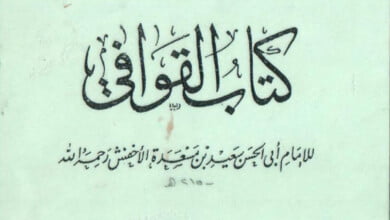 كتاب القوافي
للإمام أبي الحسن سعيد بن مسعدة الأخفش رحمه الله
- ٢١٥ هـ